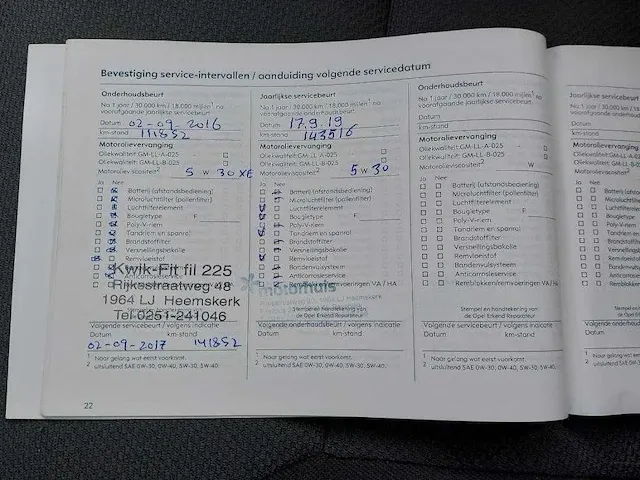 Bevestiging service-intervallen / aanduiding volgende servicedatum
Onderhoudsbeurt
Na 1 jaar / 30.000 km / 18.000 mijlen1 na
voorafgaande jaarlijkse servicebeurt.
Datum 02-09-2016
km-stand 111852
Motorolieverversing
Oliekwaliteit GM-LL-A-025
Oliekwaliteit GM-LL-B-025
Motorolieviscositeit2 5 W 30 XE
Ja Nee
Batterij (afstandsbediening)
Microluchtfilter (pollenfilter)
Luchtfilterelement
Bougietype F
Poly-V-riem
Tandriem en spanrol
Brandstoffilter
Versnellingsbakolie
Remvloeistof
Kwik-Fit fil 225
Rijksstraatweg 48
1964 LJ Heemskerk
Tel 0251-241046
Volgende servicebeurt / volgens indicatie
Datum km-stand
02-09-2017 141852
1 Naar gelang wat eerst voorkomt.
2 uitsluitend SAE 0W-30, 0W-40, 5W-30, 5W-40.
22
Jaarlijkse servicebeurt
Na 1 jaar / 30.000 km / 18.000 mijlen1 na
voorafgaande jaarlijkse servicebeurt.
Datum 17.9.19
km-stand 143516
Motorolieverversing
Oliekwaliteit GM-LL-A-025
Oliekwaliteit GM-LL-B-025
Motorolieviscositeit2 5 W 30
Ja Nee
Batterij (afstandsbediening)
Microluchtfilter (pollenfilter)
Luchtfilterelement
Bougietype F
Poly-V-riem
Tandriem en spanrol
Brandstoffilter
Versnellingsbakolie
Remvloeistof
Bandenvulsysteem
Anticorrosieservice
Remblokken/remvoeringen VA / HA
motorhuis
Stempel en handtekening van
de Opel Erkend Reparateur
Volgende onderhoudsbeurt / volgens indicatie
Datum km-stand
1 Naar gelang wat eerst voorkomt.
2 uitsluitend SAE 0W-30, 0W-40, 5W-30, 5W-40.
Onderhoudsbeurt
Na 1 jaar / 30.000 km / 18.000 mijlen1 na
voorafgaande jaarlijkse servicebeurt.
Datum
km-stand
Motorolieverversing
Oliekwaliteit GM-LL-A-025
Oliekwaliteit GM-LL-B-025
Motorolieviscositeit2 W
Ja Nee
Batterij (afstandsbediening)
Microluchtfilter (pollenfilter)
Luchtfilterelement
Bougietype F
Poly-V-riem
Tandriem en spanrol
Brandstoffilter
Versnellingsbakolie
Remvloeistof
Bandenvulsysteem
Anticorrosieservice
Remblokken/remvoeringen VA / HA
Stempel en handtekening van
de Opel Erkend Reparateur
Volgende servicebeurt / volgens indicatie
Datum km-stand
1 Naar gelang wat eerst voorkomt.
2 uitsluitend SAE 0W-30, 0W-40, 5W-30, 5W-40.
Jaarlijkse servicebeurt
Na 1 jaar / 30.000 km
voorafgaande jaarlijkse
Datum
km-stand
Ja Nee